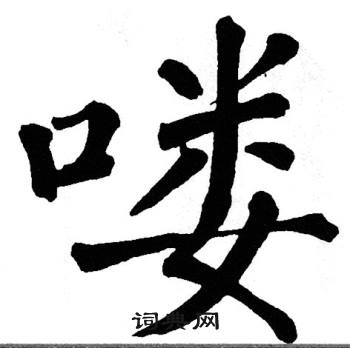 喽
词典网